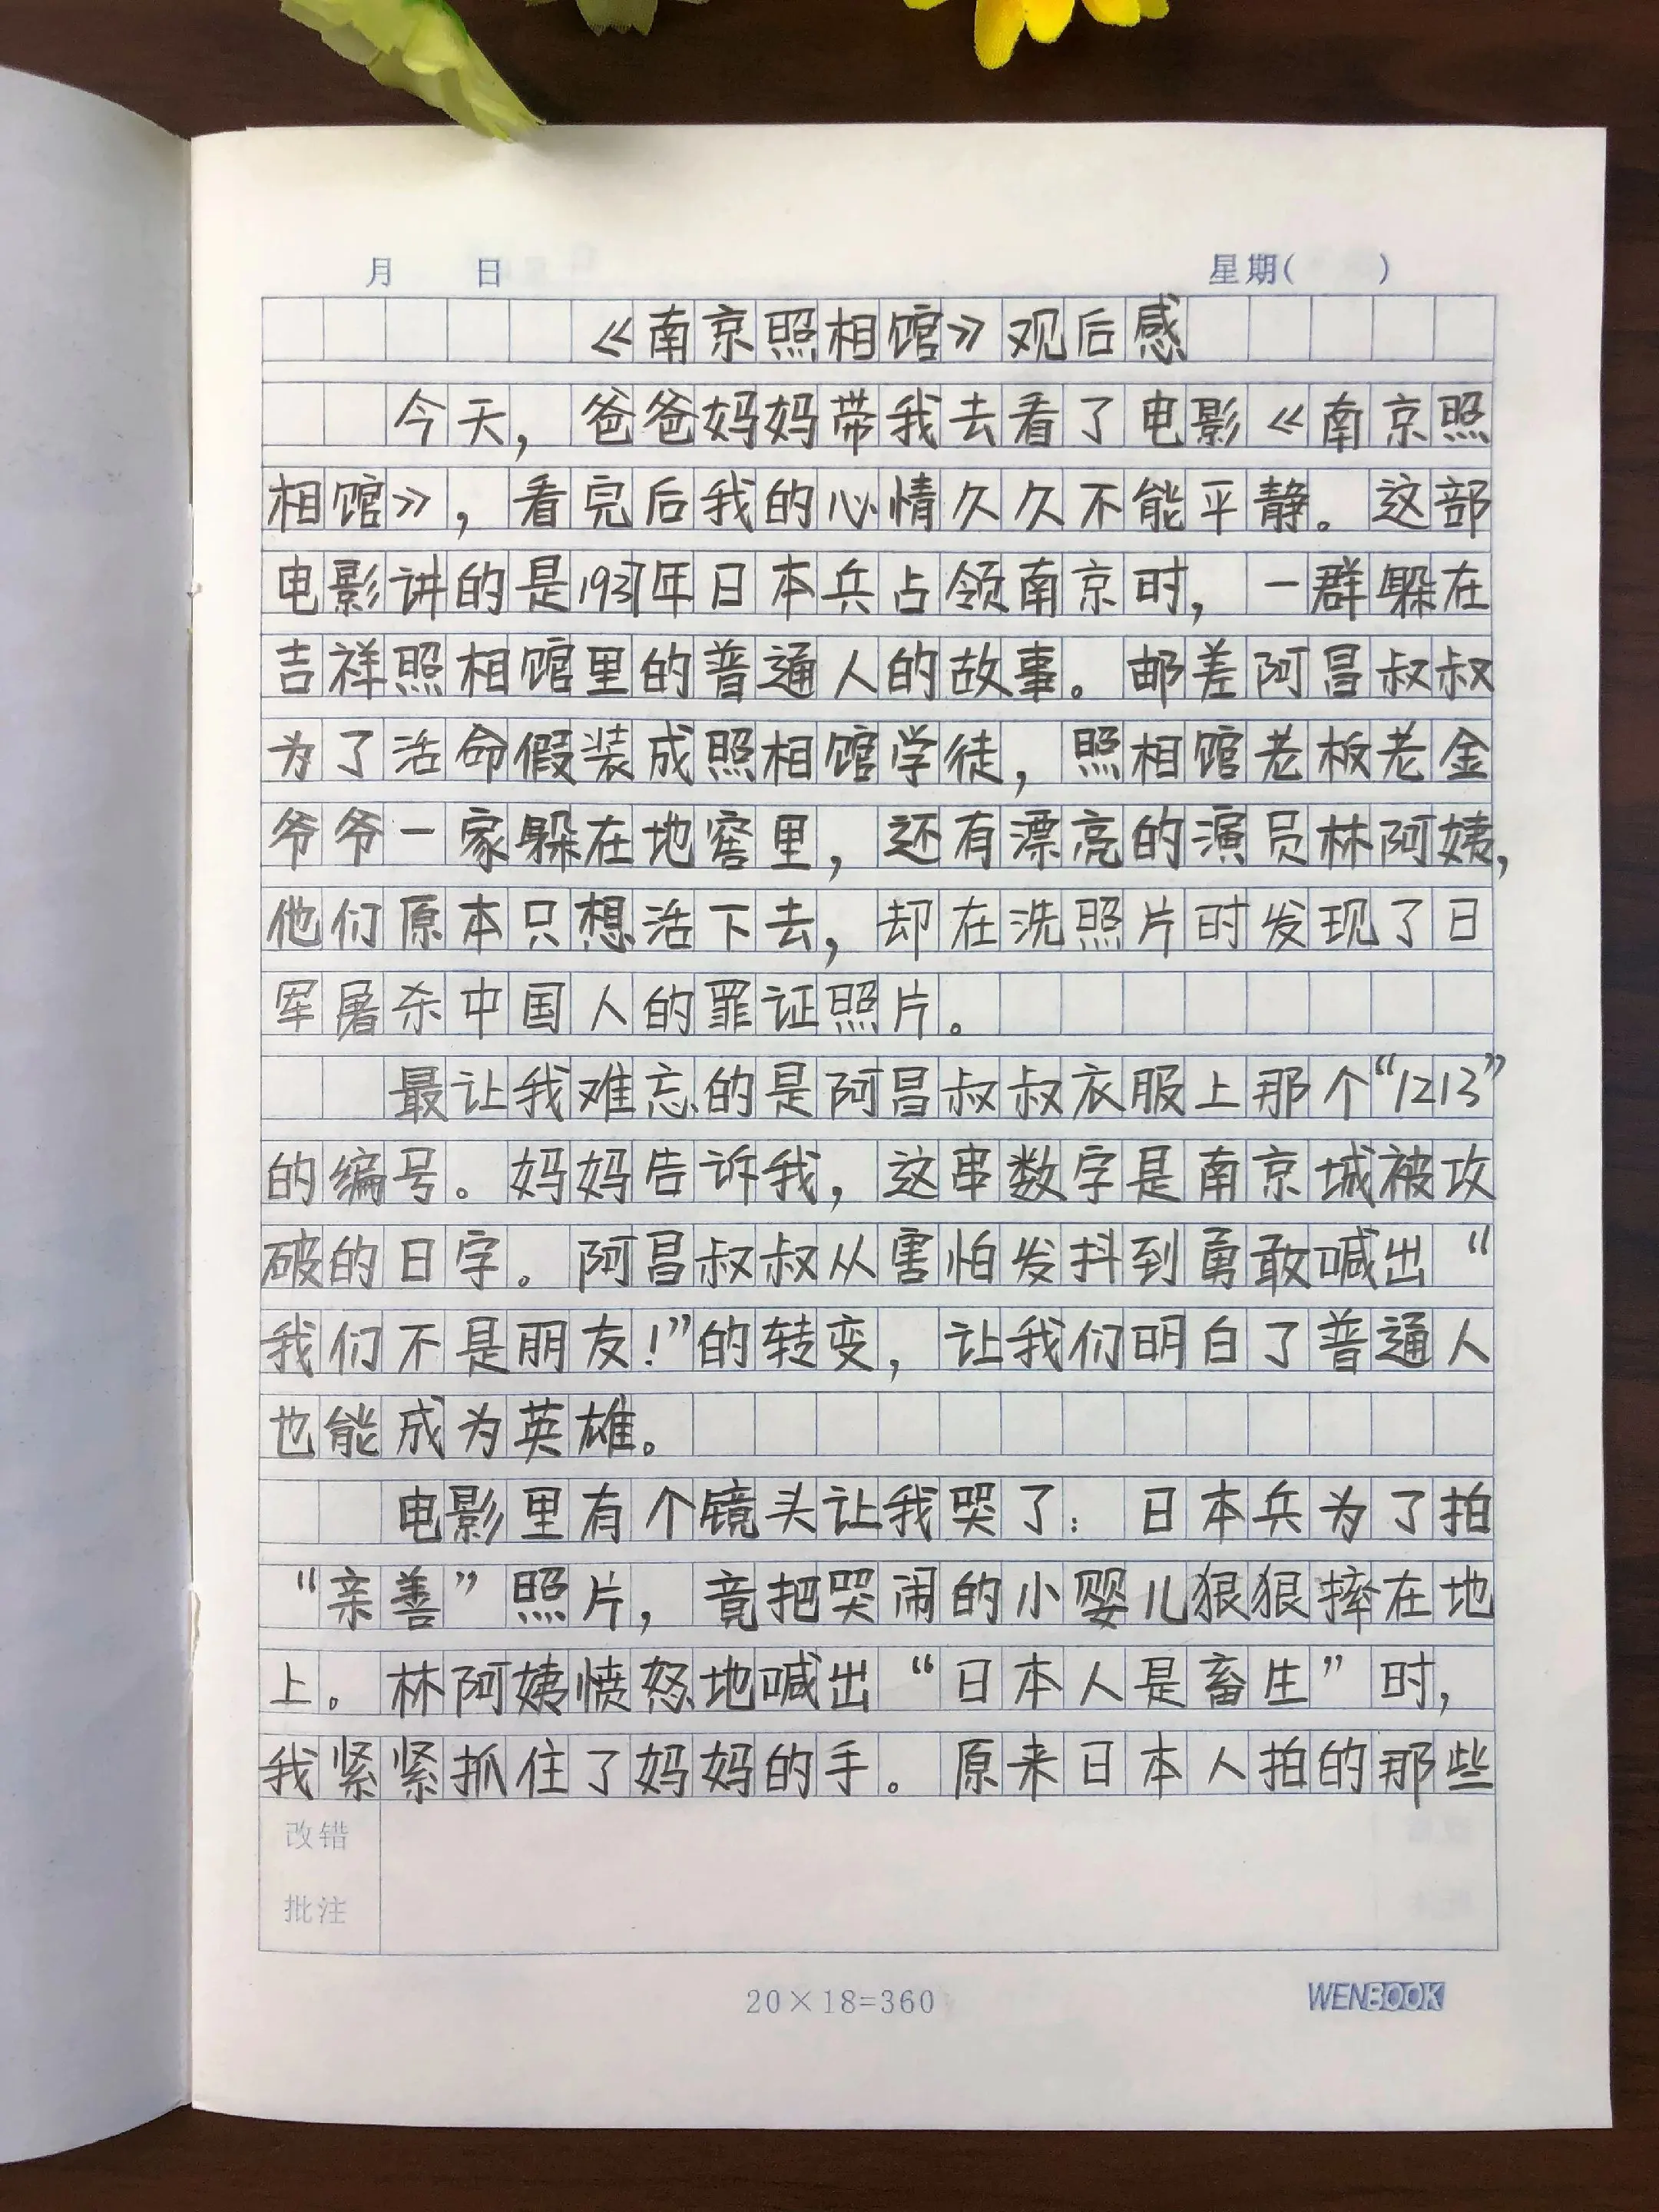 月 日 星期( )
《南京照相馆》观后感
今天，爸爸妈妈带我去看了电影《南京照
相馆》，看完后我的心情久久不能平静。这部
电影讲的是1937年日本兵占领南京时，一群躲在
吉祥照相馆里的普通人的故事。邮差阿昌叔叔
为了活命假装成照相馆学徒，照相馆老板老金
爷爷一家躲在地窖里，还有漂亮的演员林阿姨，
他们原本只想活下去，却在洗照片时发现了日
军屠杀中国人的罪证照片。
最让我难忘的是阿昌叔叔衣服上那个“1213”
的编号。妈妈告诉我，这串数字是南京城被攻
破的日字。阿昌叔叔从害怕发抖到勇敢喊出“
我们不是朋友！”的转变，让我们明白了普通人
也能成为英雄。
电影里有个镜头让我哭了：日本兵为了拍
“亲善”照片，竟把哭闹的小婴儿狠狠摔在地
上。林阿姨愤怒地喊出“日本人是畜生”时，
我紧紧抓住了妈妈的手。原来日本人拍的那些
改错
批注
20×18=360
WENBOOK